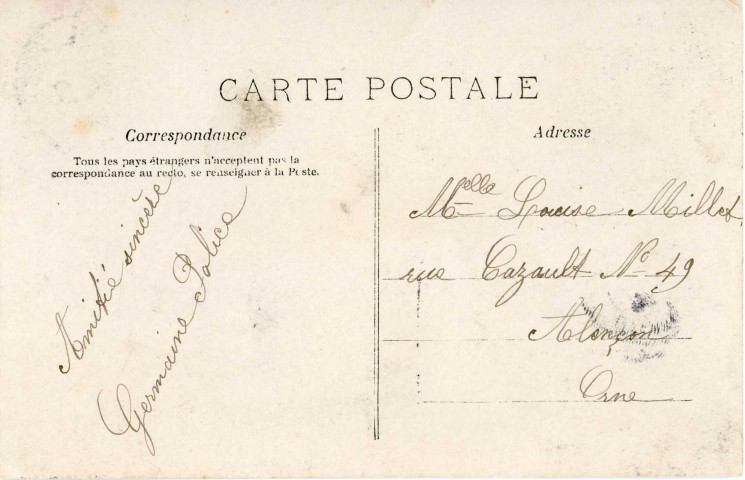 CARTE POSTALE
Correspondance
Tous les pays étrangers n'acceptent pas la
correspondance au recto, se renseigner à la Poste.
Amitié sincère
Germaine Police
Adresse
Melle Louise Millet
rue Cazault No 49
Alençon
Orne